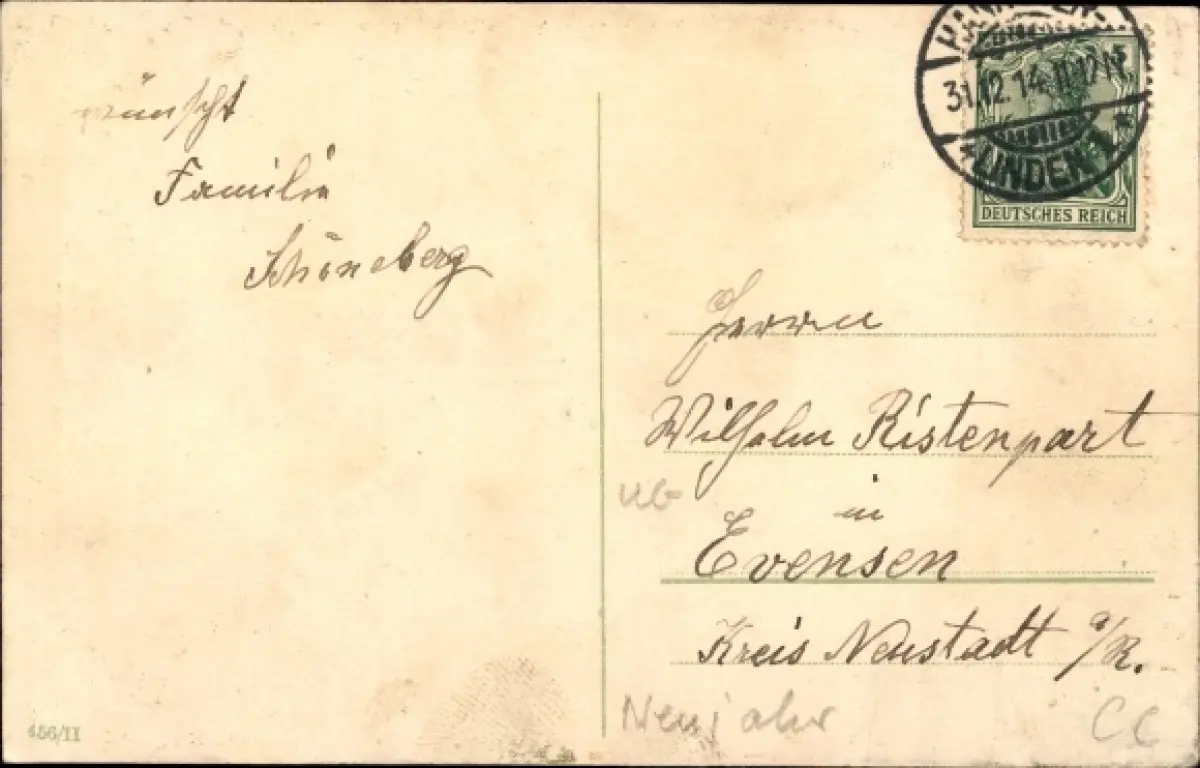 wünscht
Familie
Schöneberg
HANNOVER-
31.12.14.11-12N.
*LINDEN 1.*
DEUTSCHES REICH
Herrn
Wilhelm Ristenpart
in
Evensen
Kreis Neustadt a/R.
Neujahr
CC
456/II